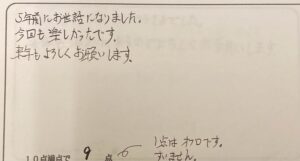 5年前にお世話になりました。
今回も楽しかったです。
来年もよろしくお願いします。
10点満点で 9 点
1点は
すいません。